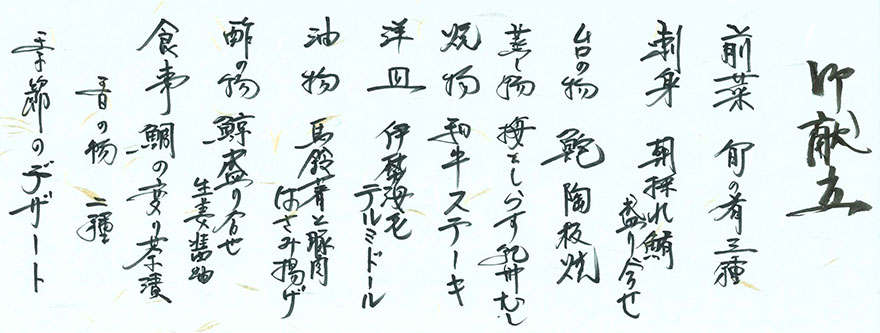 御献立
前菜 旬の肴三種
刺身 朝採れ鮪
盛り合せ
台の物 鮑陶板焼
蒸し物 梅としらす乾丼むし
焼物 和牛ステーキ
洋皿 伊勢海老
テルミドール
油物 馬鈴薯と豚肉
はさみ揚げ
酢の物 鯨盛り合せ
生姜醤油
食事 鯛の変り茶漬
香の物 二種
季節のデザート